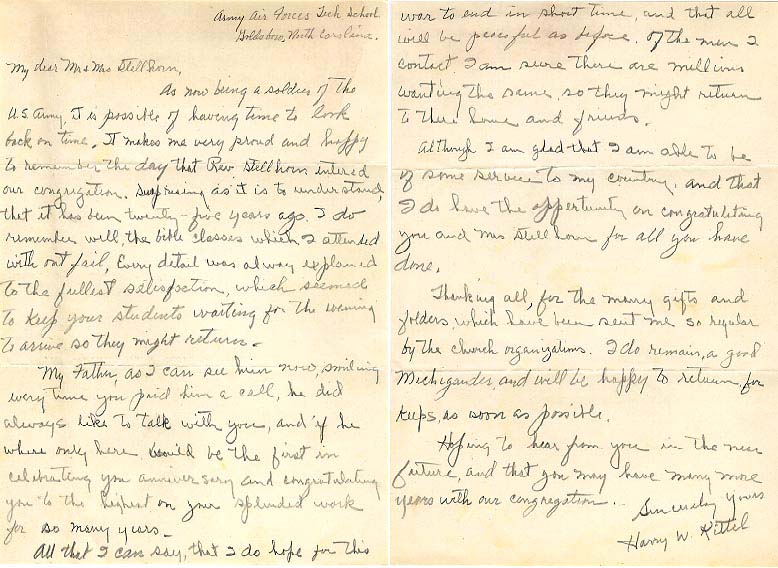 Army Air Forces Tech School
Goldsboro, North Carolina.
My dear Mr & Mrs Stellhorn,
As now being a soldier of the
U.S. Army, it is possible of having time to look
back on time. It makes me very proud and happy
to remember the day that Rev. Stellhorn intered
our congregation. Suprising as it is to understand,
that it has been twenty-five years ago. I do
remember well, the bible classes which I attended
with out fail, Every detail was alway explained
to the fullest satisfaction, which seemed
to keep your students waiting for the evening
to arrive so they might return.
My Father, as I can see him now, smiling
every time you paid him a call, he did
always like to talk with you, and if he
where only here would be the first in
celebrating you anniversary and congratulating
you to the highest on your splended work
for so many years-
All that I can say, that I do hope for this
war to end in short time, and that all
will be peaceful as before. Of the men I
contact I am sure there are millions
wanting the same, so they might return
to there home and friends.
Although I am glad that I am able to be
of some service to my country, and that
I do have the opportunity on congratulating
you and Mrs Stellhorn for all you have
done.
Thanking all, for the many gifts and
folders, which have been sent me so regular
by the church organizations. I do remain, a good
Michigander, and will be happy to return, for
keeps, as soon as possible.
Hoping to hear from you in the near
furture, and that you may have many more
years with our congregation.
Sincerely yours
Harry W. Kittel